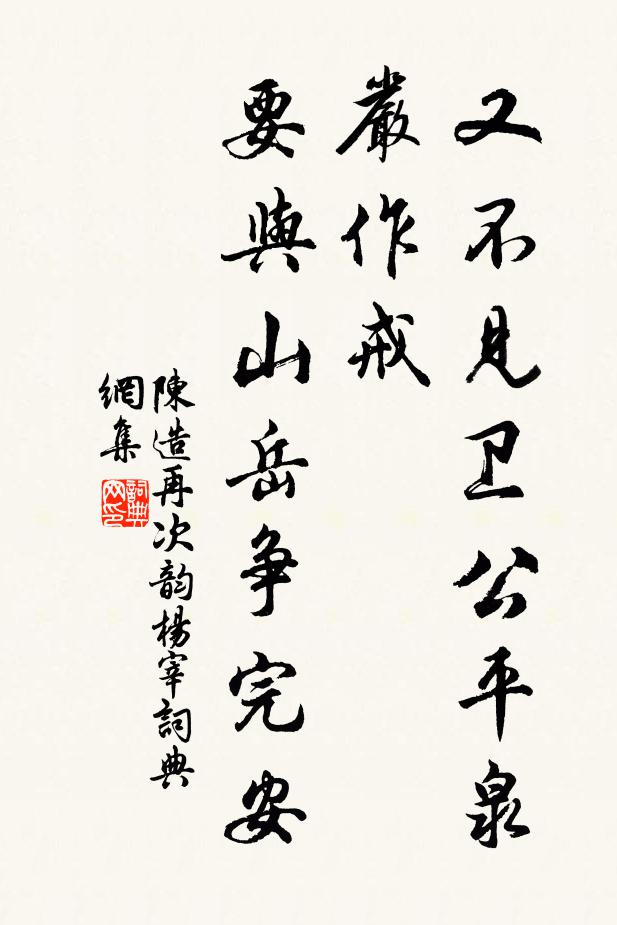 又不見卫公平泉
嚴作戒
要與山岳争完安
陳造再次韵楊宰詞典
網集
詞典网印